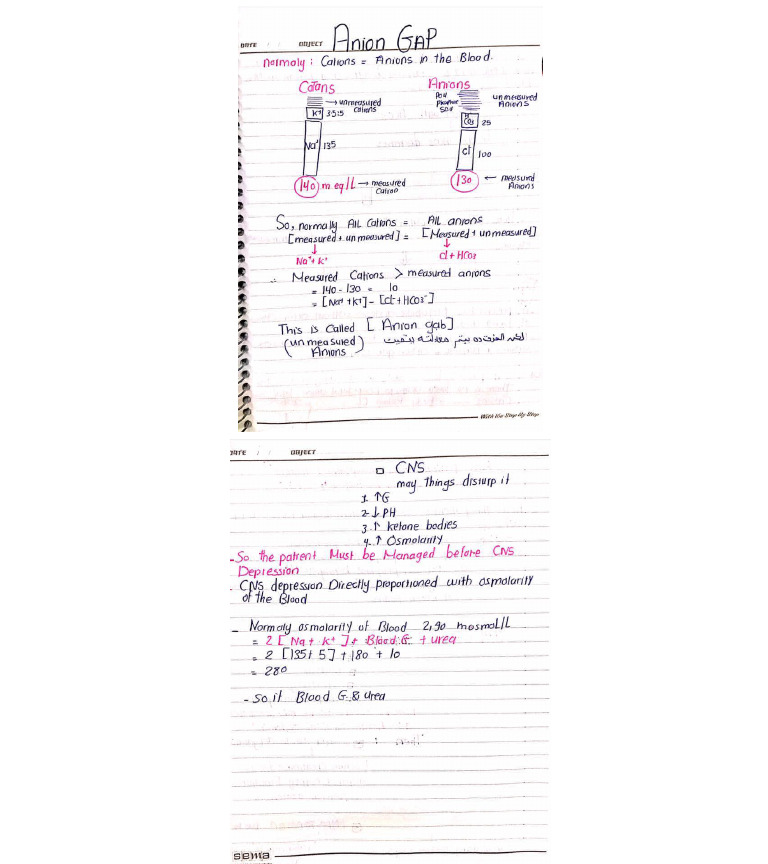 DATE / / OBJECT Anion GAP
Normaly : Cations = Anions in the Blood.
Catans
→ unmeasured
cations
K⁺ 35:5
Na⁺ 135
140 m eq/L → measured
Cation
Anions
unmeasured
Anions
HCo₃ 25
cl⁻ 100
130 ← measured
Anions
So, normally AlL Cations = AlL anions
[measured + unmeasured] = [Measured + unmeasured]
↓ ↓
Na⁺+ K⁺ cl + HCo₃
∴ Measured Cations > measured anions
= 140 - 130 = 10
= [Na⁺ + K⁺] - [Cl⁻ + HCo₃⁻]
This is Called [ Anion gab]
(unmeasured
Anions)
With the Step By Step
DATE / / OBJECT
□ CNS
may things disturp it
1. ↑G
2- ↓ PH
3. ↑ ketone bodies
4. ↑ Osmolarity
- So the patient Must be Managed before CNS
Depression
. CNS depression Directly proportioned with osmolarity
of the Blood
- Normaly osmolarity of Blood 2,90 mosmol/L
= 2 [ Na + K⁺ ] + Blood G. + urea
= 2 [135+ 5] + 180 + 10
= 280
- so if Blood G & urea
sema